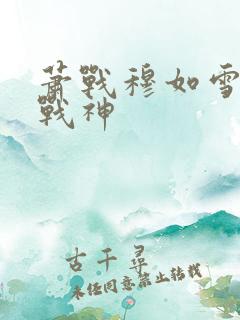 蕭戰穆如雪
戰神
古千尋
未经同意禁止转载